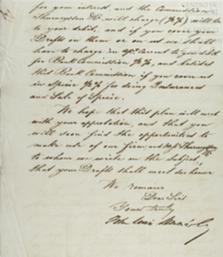 for your interest and the Commission
will charge (½%)
to your debit, and if you cover your
Drafts on them or on us we shall
have to charge in account to your debit
for Bank Commission ½%, and besides
this Bank Commission if you cover us
in Specie ½% for being Insurance
and Sale of Specie.
We hope that this plan will meet
with your approbation, and that you
will soon find the opportunities to
make use of our firm and
to whom we write on the subject,
that your Drafts shall meet due honor
We remain
Dear Sirs
Yours truly